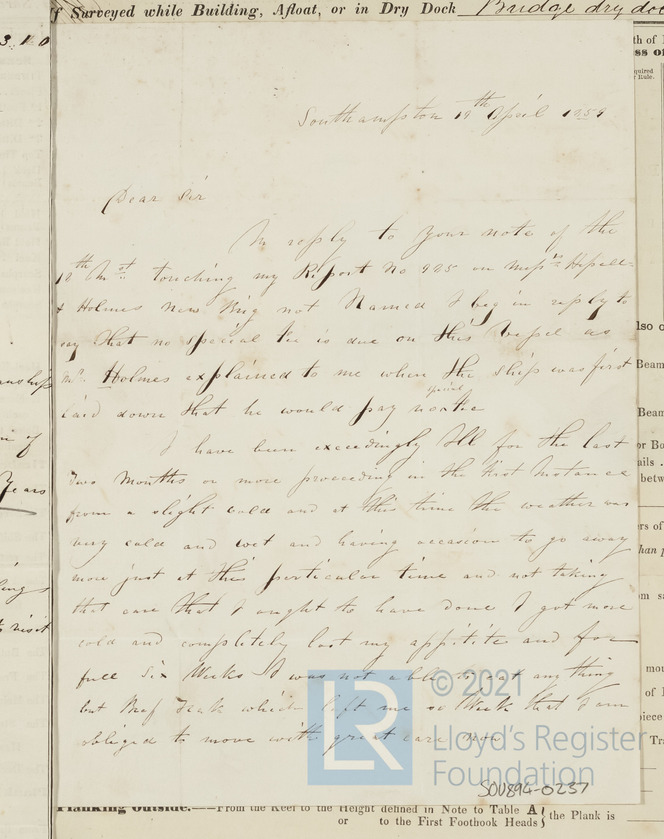 f Surveyed while Building, Afloat, or in Dry Dock Bridge dry doc
310
Southampton 19th April 1859
Dear Sir
In reply to your note of the
18th Inst. touching my Report No 925 on Messrs
& Holmes New Brig not Named I beg in reply to
say that no special fee is due on this Vessel as
Mr. Holmes explained to me when the ship was first
special
laid down that he would pay no
I have been exceedingly Ill for the last
Two Months or more proceeding in the first Instance
from a slight cold and at this time the weather was
very cold and wet and having occasion to go away
more just at this particular time and not taking
that care that I ought to have done I got more
cold and completely lost my appitite and for
full Six Weeks I was not able to eat any thing
but Beaf Teak which left me so Weak that I am
obliged to move with great care
© 2021
LR
Lloyd's Register
Foundation
SOU894-0237
Planking Outside.——From the Keel to the Height defined in Note to Table A
or to the First Foothook Heads
the Plank is
n of
Years
visit
th of
ss of
quired
Rule.
lso o
Beam
Beam
or Bo
ails .
betw
rs of
han p
m sa
mou
of I
piece
Tra